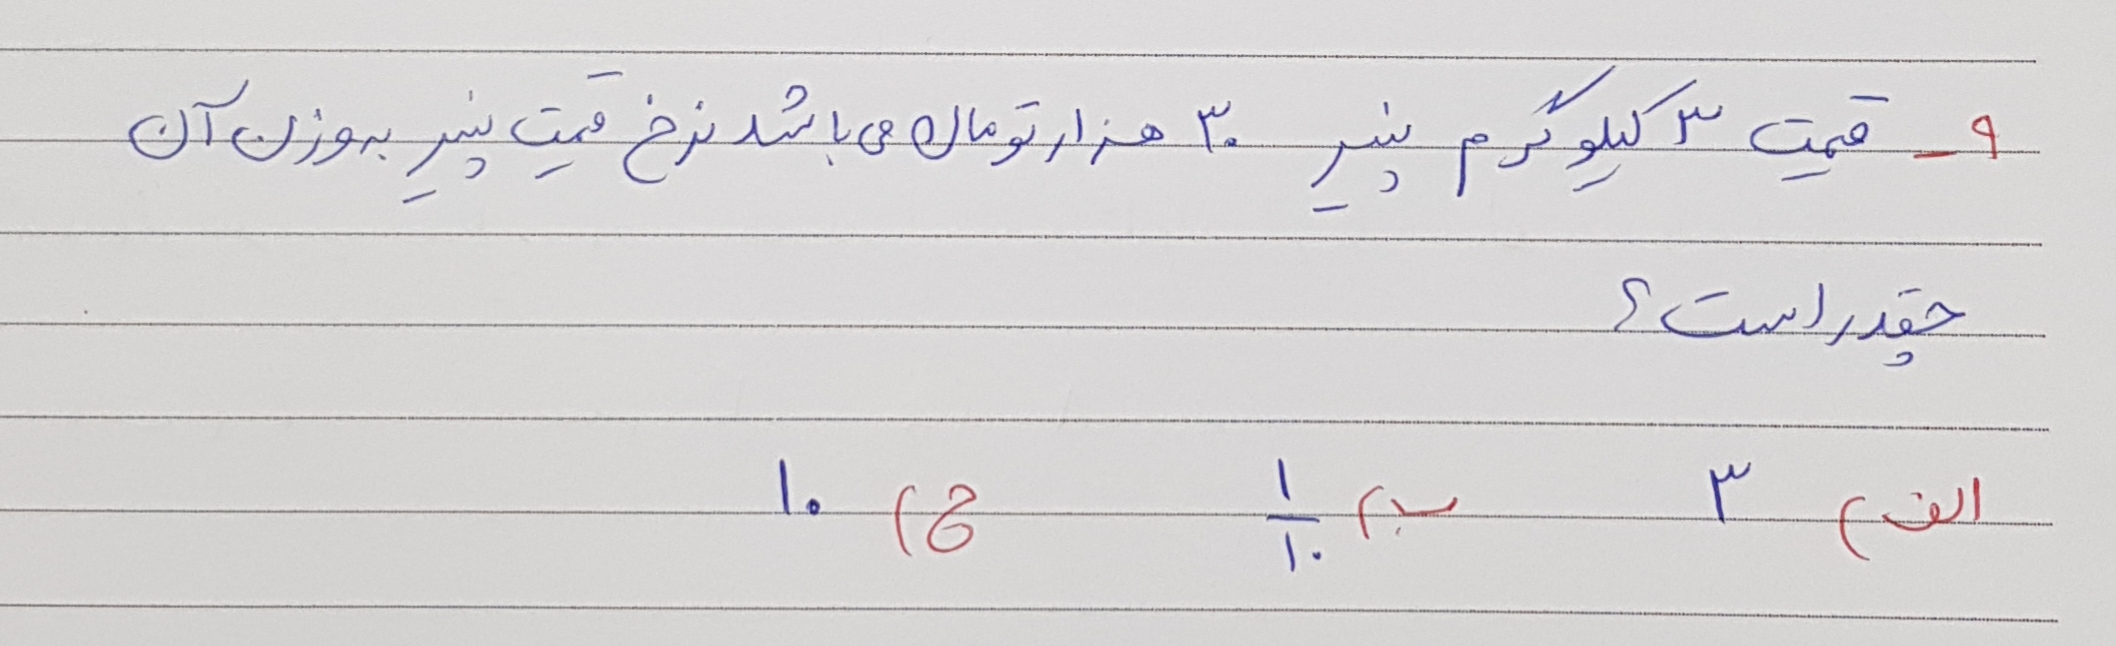 ۹_ قیمت ۳ کیلوگرم پنیر ۳۰ هزار تومان می باشد نرخ قیمت پنیر به وزن آن
چقدر است؟
الف) ۳ ب) ۱/۱۰ ج) ۱۰